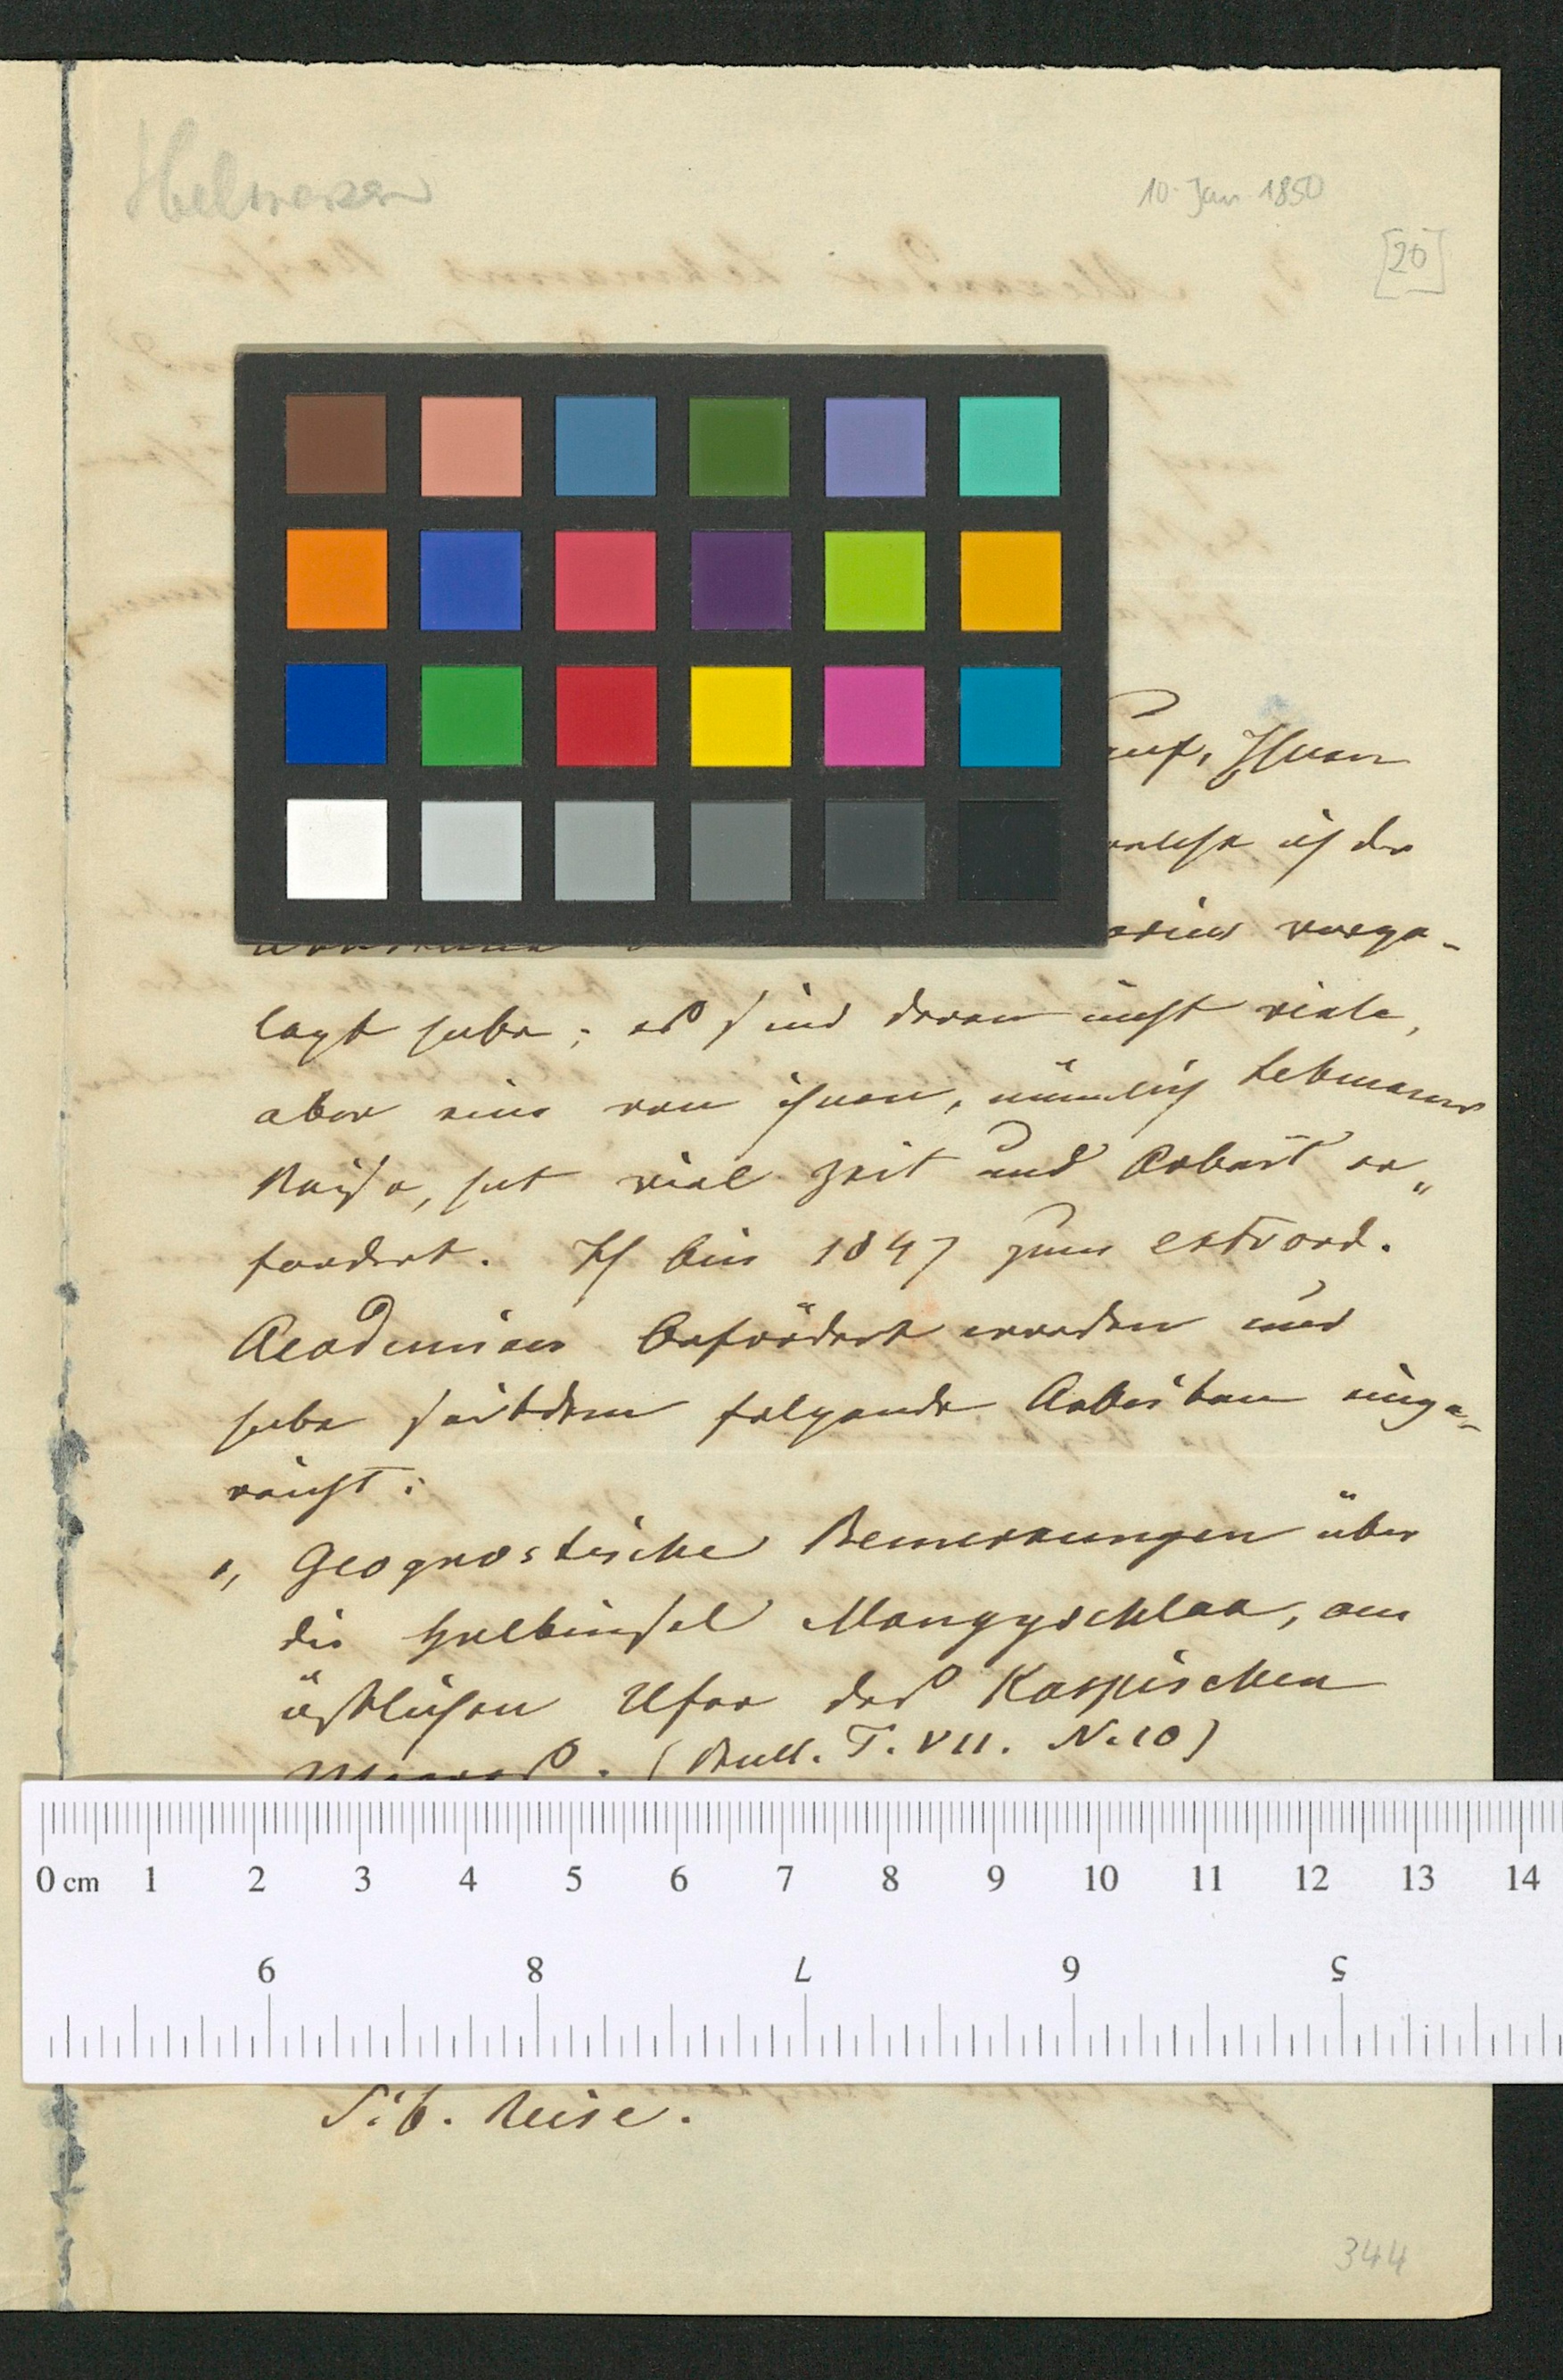 Helmersen
10. Jan. 1850
[20]
auf, Ihnen
welche ich der
vorge-
legt habe; es sind deren nicht viele,
aber eine von ihnen, nämlich Lehmanns
Reise, hat viel Zeit und Arbeit er„
fordert. Ich bin 1847 zum extraord.
Academiker befördert worden und
habe seitdem folgende Arbeiten einge-
reicht:
1, Geognostische Bemerkungen über
die Halbinsel Mangyschlak, am
östlichen Ufer des Kaspischen
Meeres. (Bull. T. VII. N. 10)
0 cm 1 2 3 4 5 6 7 8 9 10 11 12 13 14
9 8 7 6 5
Sib. Reise.
344